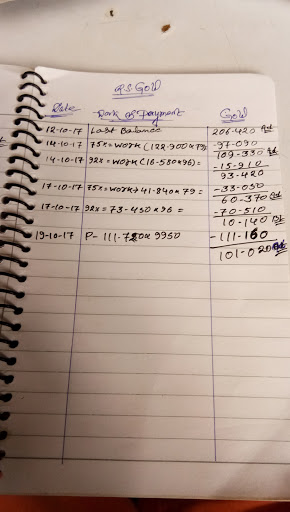 RS Gold
Date Mark of Payment Gold
12-10-17 Last Balance 206.420
14-10-17 75x = work (122-900x79) -97-090
109-330
14-10-17 92x = work (16-580x96) = -15-910
93-420
17-10-17 75x = work + 41-840x79 = -33-050
60-370
17-10-17 92x = 73-450x96 = -70-510
10-140
19-10-17 P- 111-720x 9950 -111-160
101-020